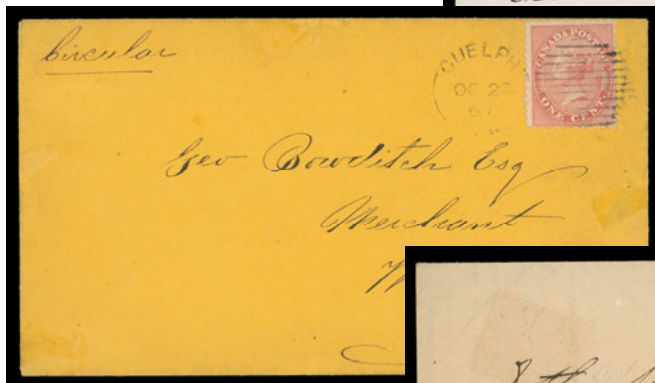 Circular
GUELPH
OC 23
67
CANADA POSTAGE
ONE CENT
Geo Bowditch Esq
Merchant